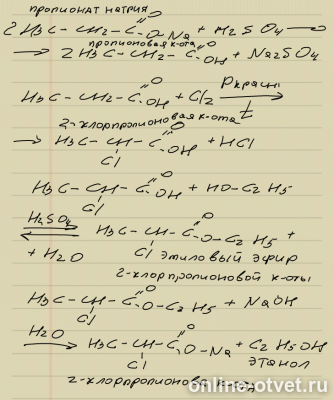 пропионат натрия
2 H3C – CH2 – C(=O) – O – Na + H2SO4 →
пропионовая к-та
→ 2 H3C – CH2 – C(=O) – OH + Na2SO4
H3C – CH2 – C(=O) – OH + Cl2 →(Pкрасн, t)
2-хлорпропионовая к-ота
→ H3C – CH(Cl) – C(=O) – OH + HCl
H3C – CH(Cl) – C(=O) – OH + HO – C2H5
⇄(H2SO4) H3C – CH(Cl) – C(=O) – O – C2H5 +
+ H2O этиловый эфир
2-хлорпропионовой к-оты
H3C – CH(Cl) – C(=O) – O – C2H5 + NaOH
→(H2O) H3C – CH(Cl) – C(=O) – O – Na + C2H5OH
этанол
2-хлорпропионовой
online-otvet.ru